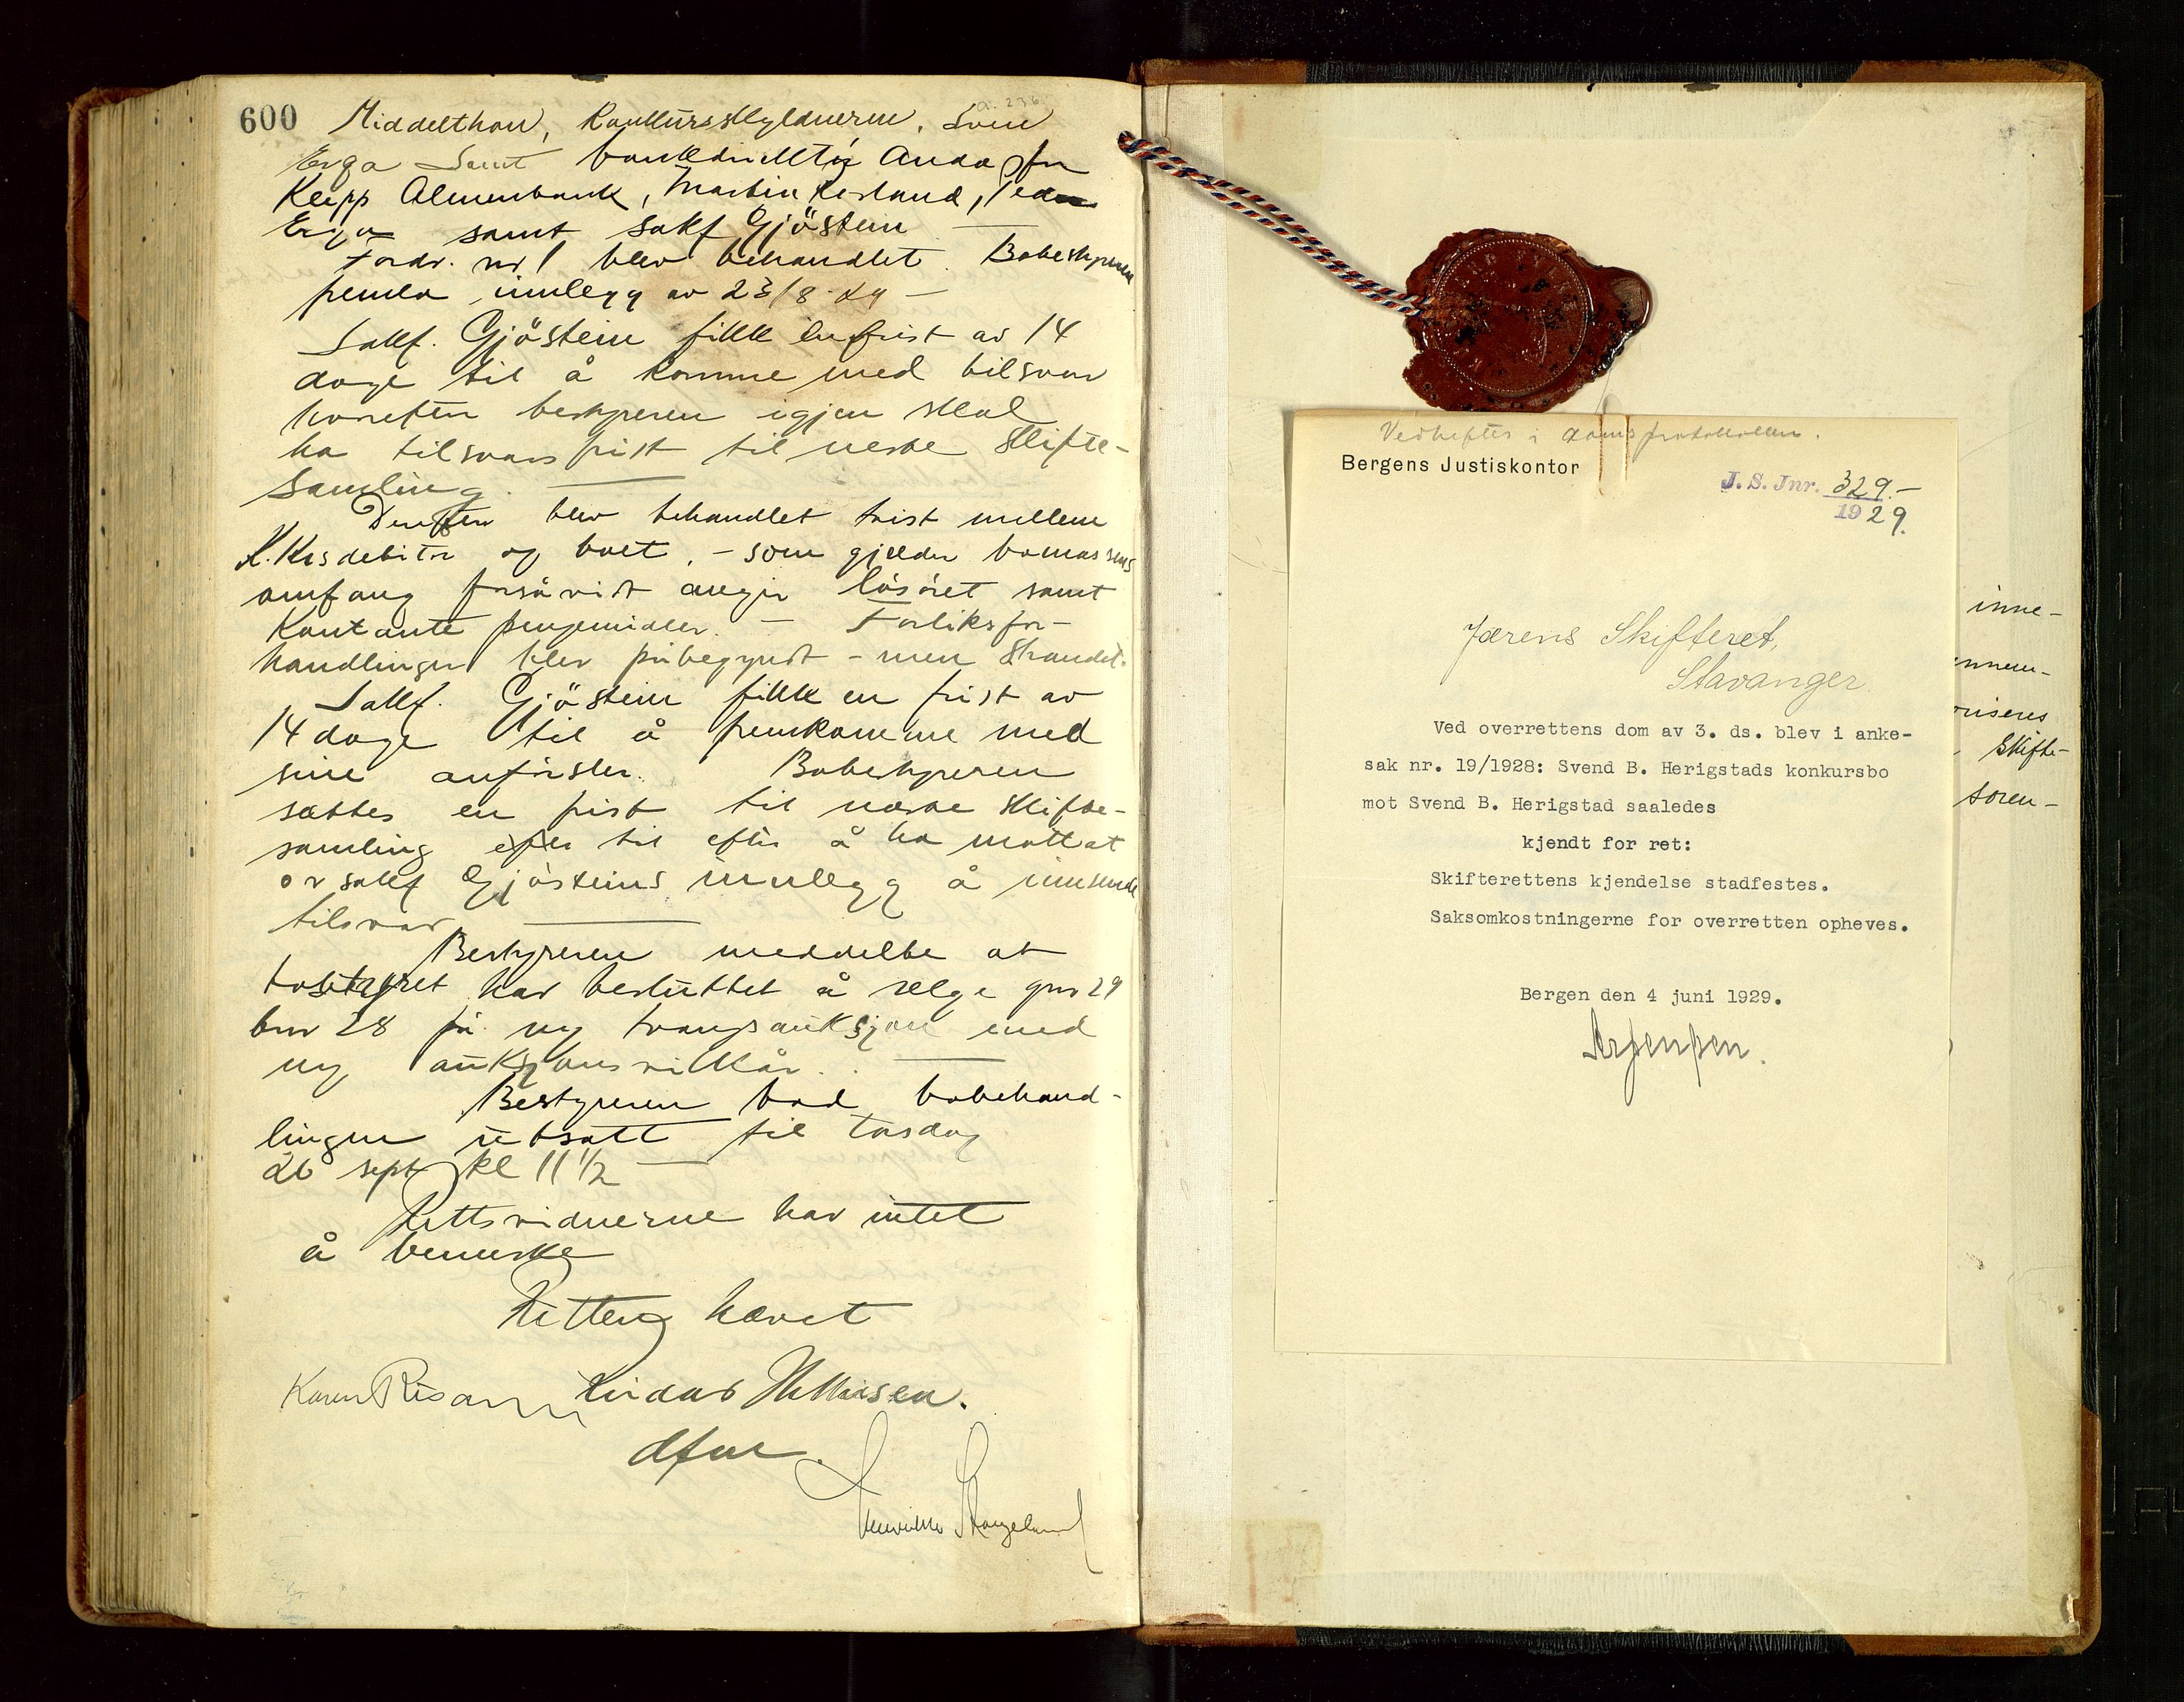 600 Middelthon, Konkursskyldneren, Svein
Erga samt bankdirektør Anda for
Klepp Almenbank, Martin Kesland, Peder
Erga samt sakf Gjöstein
Fordr. nr 1 blev behandlet. Bobestyreren
fremla innlegg av 23/8-29 –
Sakf. Gjöstein fikk en frist av 14
dage til å komme med tilsvar
hvorefter bestyreren igjen skal
ha tilsvarsfrist til neste skifte-
samling.
Derefter blev behandlet tvist mellem
K.Krsdebitor og boet, – som gjelder bomassens
omfang forsåvidt angår løsöret samt
kontante pengemidler. – Forliksfor-
handlinger blev påbegyndt – men strandet.
Sakf. Gjöstein fikk en frist av
14 dage til å fremkomme med
sine anførsler. Bobestyreren
sættes en frist til næste skifte-
samling efter til efter å ha mottat
ov sakf Gjösteins innlegg å innsende
tilsvar
Bestyreren meddelte at
bostyret har besluttet å selge gnr 29
bnr 28 på ny tvangsauksjon med
ny auksjonsvilkår.
Bestyreren bad bobehand-
lingen utsatt til torsdag
26 sept kl 11 1/2
Rettsvidnerne har intet
å bemerke
Retten hævet
Karen Risa
dfm.
Vedheftes i domsprotokollen.
Bergens Justiskontor
J. S. Jnr. 329.–
1929.
Jærens Skifteret,
Stavanger.
Ved overrettens dom av 3. ds. blev i anke-
sak nr. 19/1928: Svend B. Herigstads konkursbo
mot Svend B. Herigstad saaledes
kjendt for ret:
Skifterettens kjendelse stadfestes.
Saksomkostningerne for overretten opheves.
Bergen den 4 juni 1929.
inne-
riseres
Skifte-